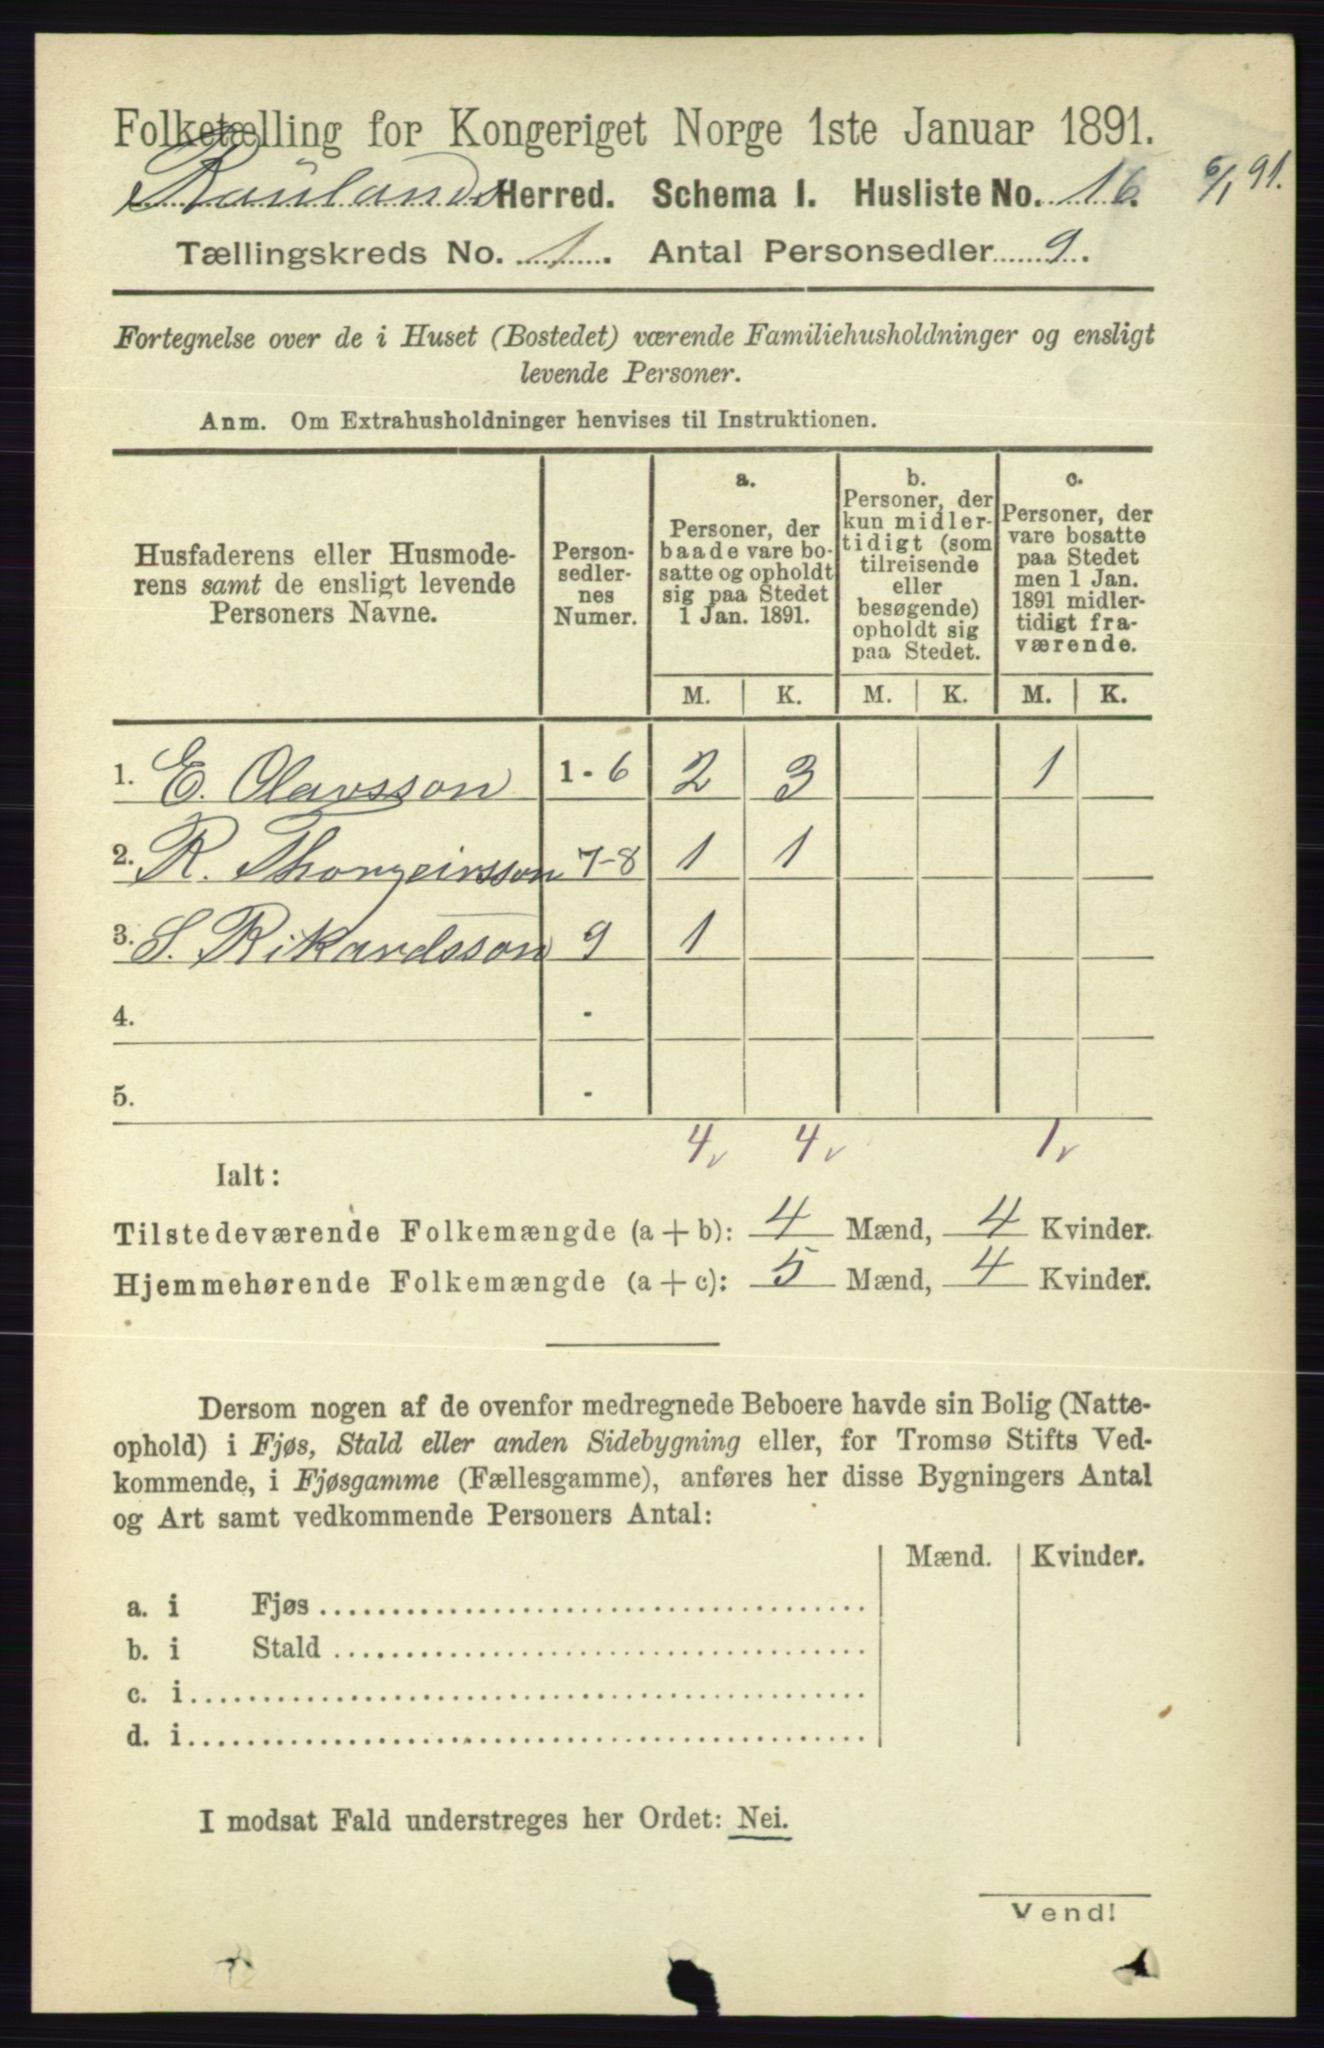 Folketælling for Kongeriget Norge 1ste Januar 1891.
Raulands Herred. Schema I. Husliste No. 16. 6/1 91.
Tællingskreds No. 1. Antal Personsedler 9.
Fortegnelse over de i Huset (Bostedet) værende Familiehusholdninger og ensligt
levende Personer.
Anm. Om Extrahusholdninger henvises til Instruktionen.
Husfaderens eller Husmode-
rens samt de ensligt levende
Personers Navne.
Person-
sedler-
nes
Numer.
a.
Personer, der
baade vare bo-
satte og opholdt
sig paa Stedet
1 Jan. 1891.
b.
Personer, der
kun midler-
tidigt (som
tilreisende
eller
besøgende)
opholdt sig
paa Stedet.
c.
Personer, der
vare bosatte
paa Stedet
men 1 Jan.
1891 midler-
tidigt fra-
værende.
M. K. M. K. M. K.
1. E. Olavsson 1-6 2 3 1
2. R. Thorgeirsson 7-8 1 1
3. S. Rikardsson 9 1
4. -
5. -
4 v 4 v 1 v
Ialt:
Tilstedeværende Folkemængde (a + b): 4 Mænd, 4 Kvinder.
Hjemmehørende Folkemængde (a + c): 5 Mænd, 4 Kvinder.
Dersom nogen af de ovenfor medregnede Beboere havde sin Bolig (Natte-
ophold) i Fjøs, Stald eller anden Sidebygning eller, for Tromsø Stifts Ved-
kommende, i Fjøsgamme (Fællesgamme), anføres her disse Bygningers Antal
og Art samt vedkommende Personers Antal:
Mænd. Kvinder.
a. i Fjøs
b. i Stald
c. i
d. i
I modsat Fald understreges her Ordet: Nei.
Vend!